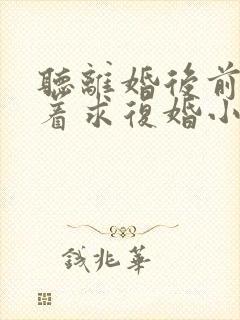 聽離婚後前
着求復婚小
钱兆華